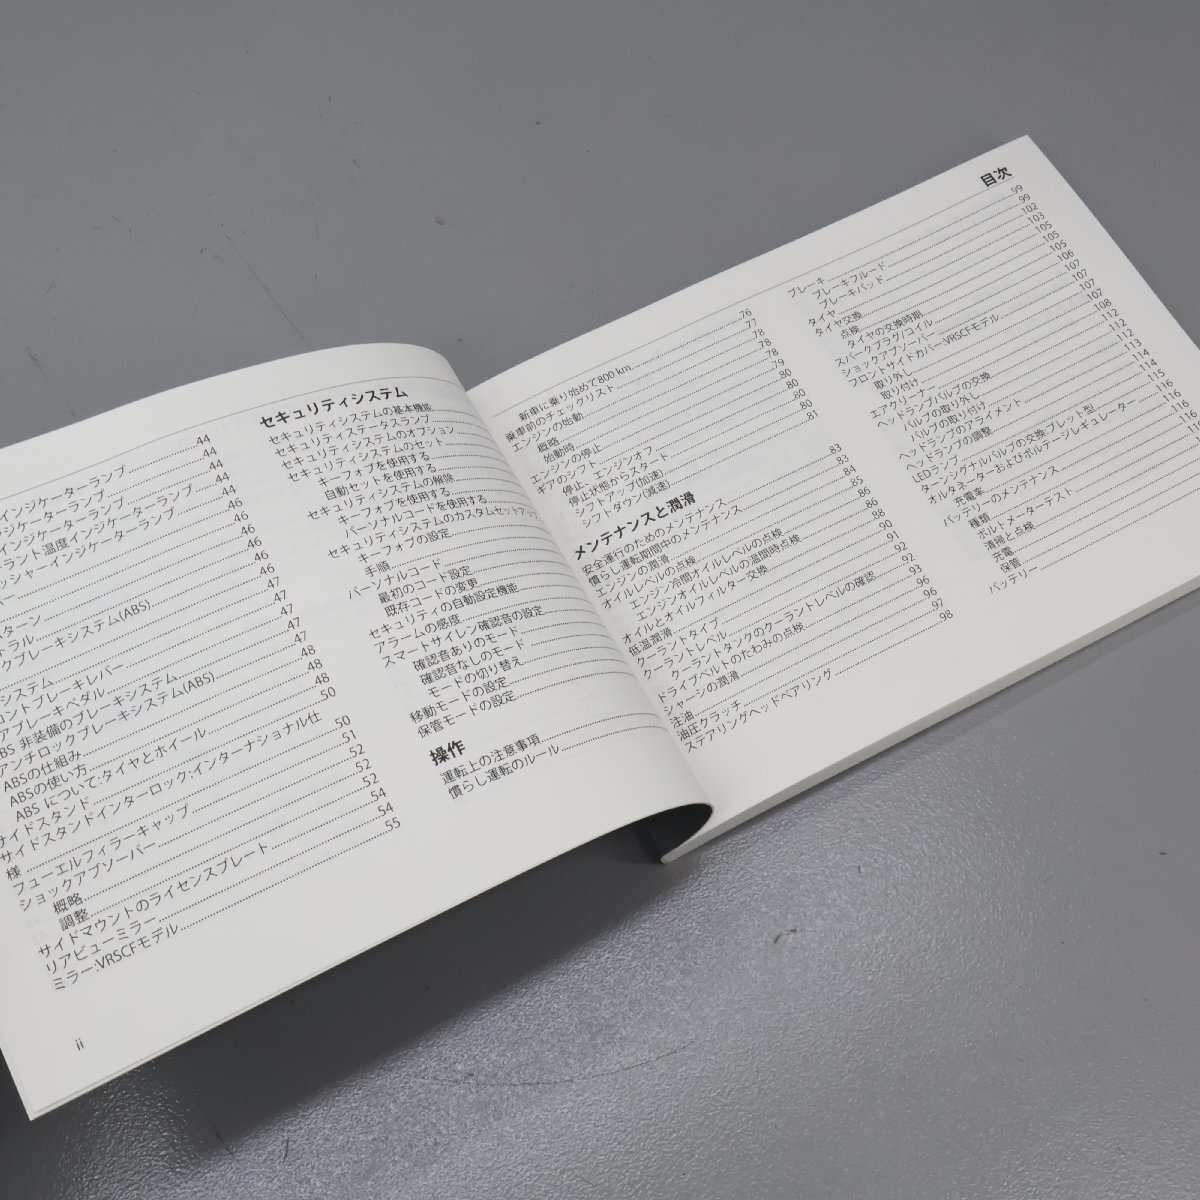 インジケーターランプ
ジケーターランプ 44
インジケーターランプ 44
ラント温度インジケーターランプ 44
ッシャーインジケーターランプ 44
バー 46
ターン 46
トラル 46
クブレーキシステム(ABS) 46
システム 47
ロントブレーキレバー 47
アブレーキペダル 47
BS 非装備のブレーキシステム 47
アンチロックブレーキシステム(ABS) 48
ABSの仕組み 48
ABSの使い方 48
ABS について:タイヤとホイール 50
サイドスタンド
サイドスタンドインターロック:インターナショナル仕
様 50
フューエルフィラーキャップ 51
ショックアブソーバー 52
概略 52
調整 54
サイドマウントのライセンスプレート 54
リアビューミラー 55
ミラー:VRSCFモデル
ii
セキュリティシステム
セキュリティシステムの基本機能
セキュリティステータスランプ
セキュリティシステムのオプション
セキュリティシステムのセット
キーフォブを使用する
自動セットを使用する
セキュリティシステムの解除
キーフォブを使用する
パーソナルコードを使用する
セキュリティシステムのカスタムセットアップ
キーフォブの設定
手順
パーソナルコード
最初のコード設定
既存コードの変更
セキュリティの自動設定機能
アラームの感度
スマートサイレン確認音の設定
確認音ありのモード
確認音なしのモード
モードの切り替え
移動モードの設定
保管モードの設定
操作
運転上の注意事項
慣らし運転のルール
目次
新車に乗り始めて800 km 76
乗車前のチェックリスト 77
エンジンの始動 78
概略 78
始動時 78
エンジンの停止 79
ギアのシフト 80
停止、エンジンオフ 80
停止状態からスタート 80
シフトアップ(加速) 80
シフトダウン(減速) 81
メンテナンスと潤滑
安全運行のためのメンテナンス 83
慣らし運転期間中のメンテナンス 83
エンジンの潤滑 84
オイルレベルの点検 85
エンジン冷間オイルレベルの点検 85
エンジンオイルレベルの温間時点検 86
オイルとオイルフィルター交換 88
低温潤滑 90
クーラントタイプ 91
クーラントレベル 92
クーラントタンクのクーラントレベルの確認 92
ドライブベルトのたわみの点検 93
シャーシの潤滑 96
注油 96
油圧クラッチ 97
ステアリングヘッドベアリング 98
ブレーキ 99
ブレーキフルード 99
ブレーキパッド 102
タイヤ 103
タイヤ交換 105
点検 105
タイヤの交換時期 105
スパークプラグ/コイル 106
ショックアブソーバー 107
フロントサイドカバー:VRSCFモデル 107
取り外し 107
取り付け 107
エアクリーナー 108
ヘッドランプバルブの交換 112
バルブの取り外し 112
バルブの取り付け 113
ヘッドランプのアライメント 114
ヘッドランプの調整 114
LEDランプ 115
ターンシグナルバルブの交換:ブレット型 116
オルタネーターおよびボルテージレギュレーター 116
充電率 116
バッテリーのメンテナンス
種類
ボルトメーターテスト
清掃と点検
充電
保管
バッテリー